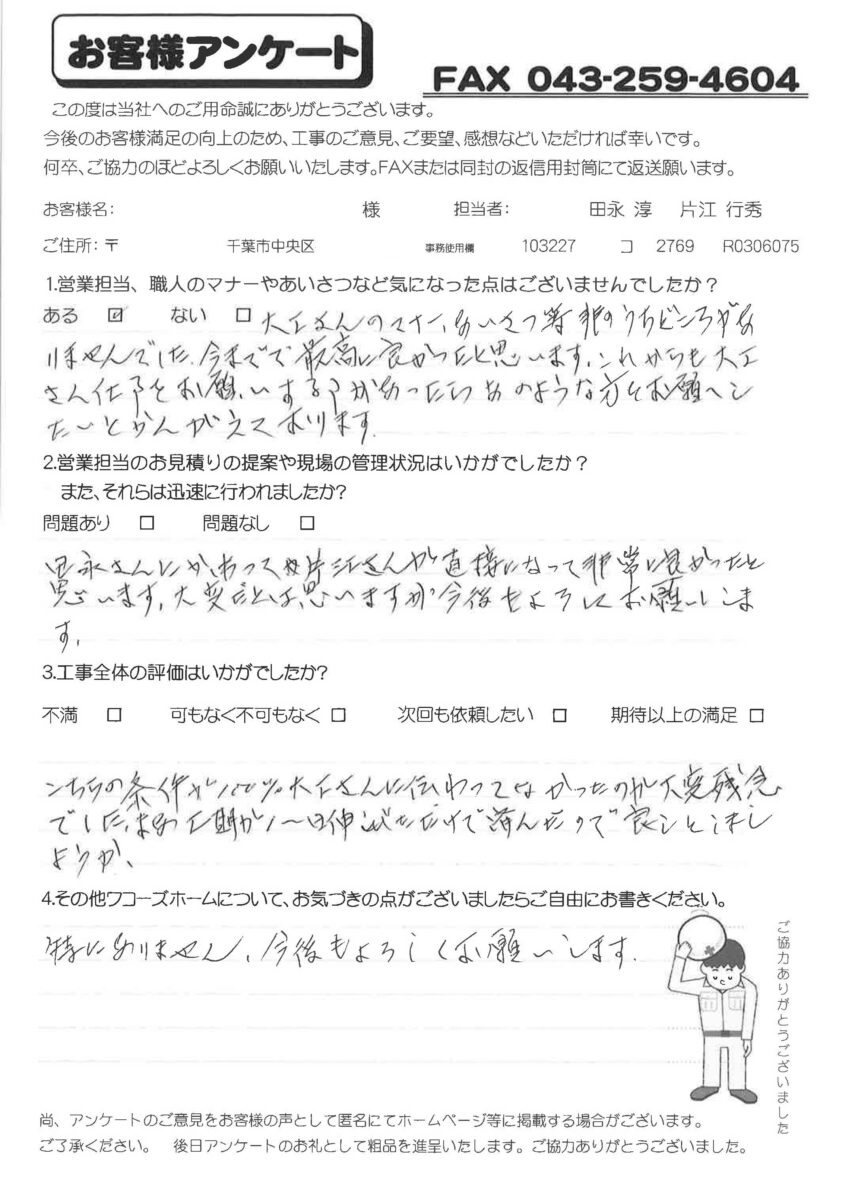 お客様アンケート
FAX 043-259-4604
この度は当社へのご用命誠にありがとうございます。
今後のお客様満足の向上のため、工事のご意見、ご要望、感想などいただければ幸いです。
何卒、ご協力のほどよろしくお願いいたします。FAXまたは同封の返信用封筒にて返送願います。
お客様名: 様 担当者: 田永 淳 片江 行秀
ご住所:〒 千葉市中央区 事務使用欄 103227 コ 2769 R0306075
1.営業担当、職人のマナーやあいさつなど気になった点はございませんでしたか?
ある ☑ ない □ 大工さんのマナー、あいさつ等非のうちどころがあ
りませんでした、今までで最高に良かったと思います。これからも大工
さん仕事をお願いする事があったらあのような方をお願いし
たいとかんがえております.
2.営業担当のお見積りの提案や現場の管理状況はいかがでしたか?
また、それらは迅速に行われましたか?
問題あり □ 問題なし □
田永さんにかわって片江さんが直接になって非常に良かったと
思います。大変だとは思いますが今後もよろしくお願いしま
す.
3.工事全体の評価はいかがでしたか?
不満 □ 可もなく不可もなく □ 次回も依頼したい □ 期待以上の満足 □
こちらの条件が大工さんに伝わってなかったのが大変残念
でした、まあ工期が一日伸びただけで済んだので良しとしまし
ようか、
4.その他ワコーズホームについて、お気づきの点がございましたらご自由にお書きください。
特にありません、今後もよろしくお願いします.
ご協力ありがとうございました
尚、アンケートのご意見をお客様の声として匿名にてホームページ等に掲載する場合がございます。
ご了承ください。 後日アンケートのお礼として粗品を進呈いたします。ご協力ありがとうございました。